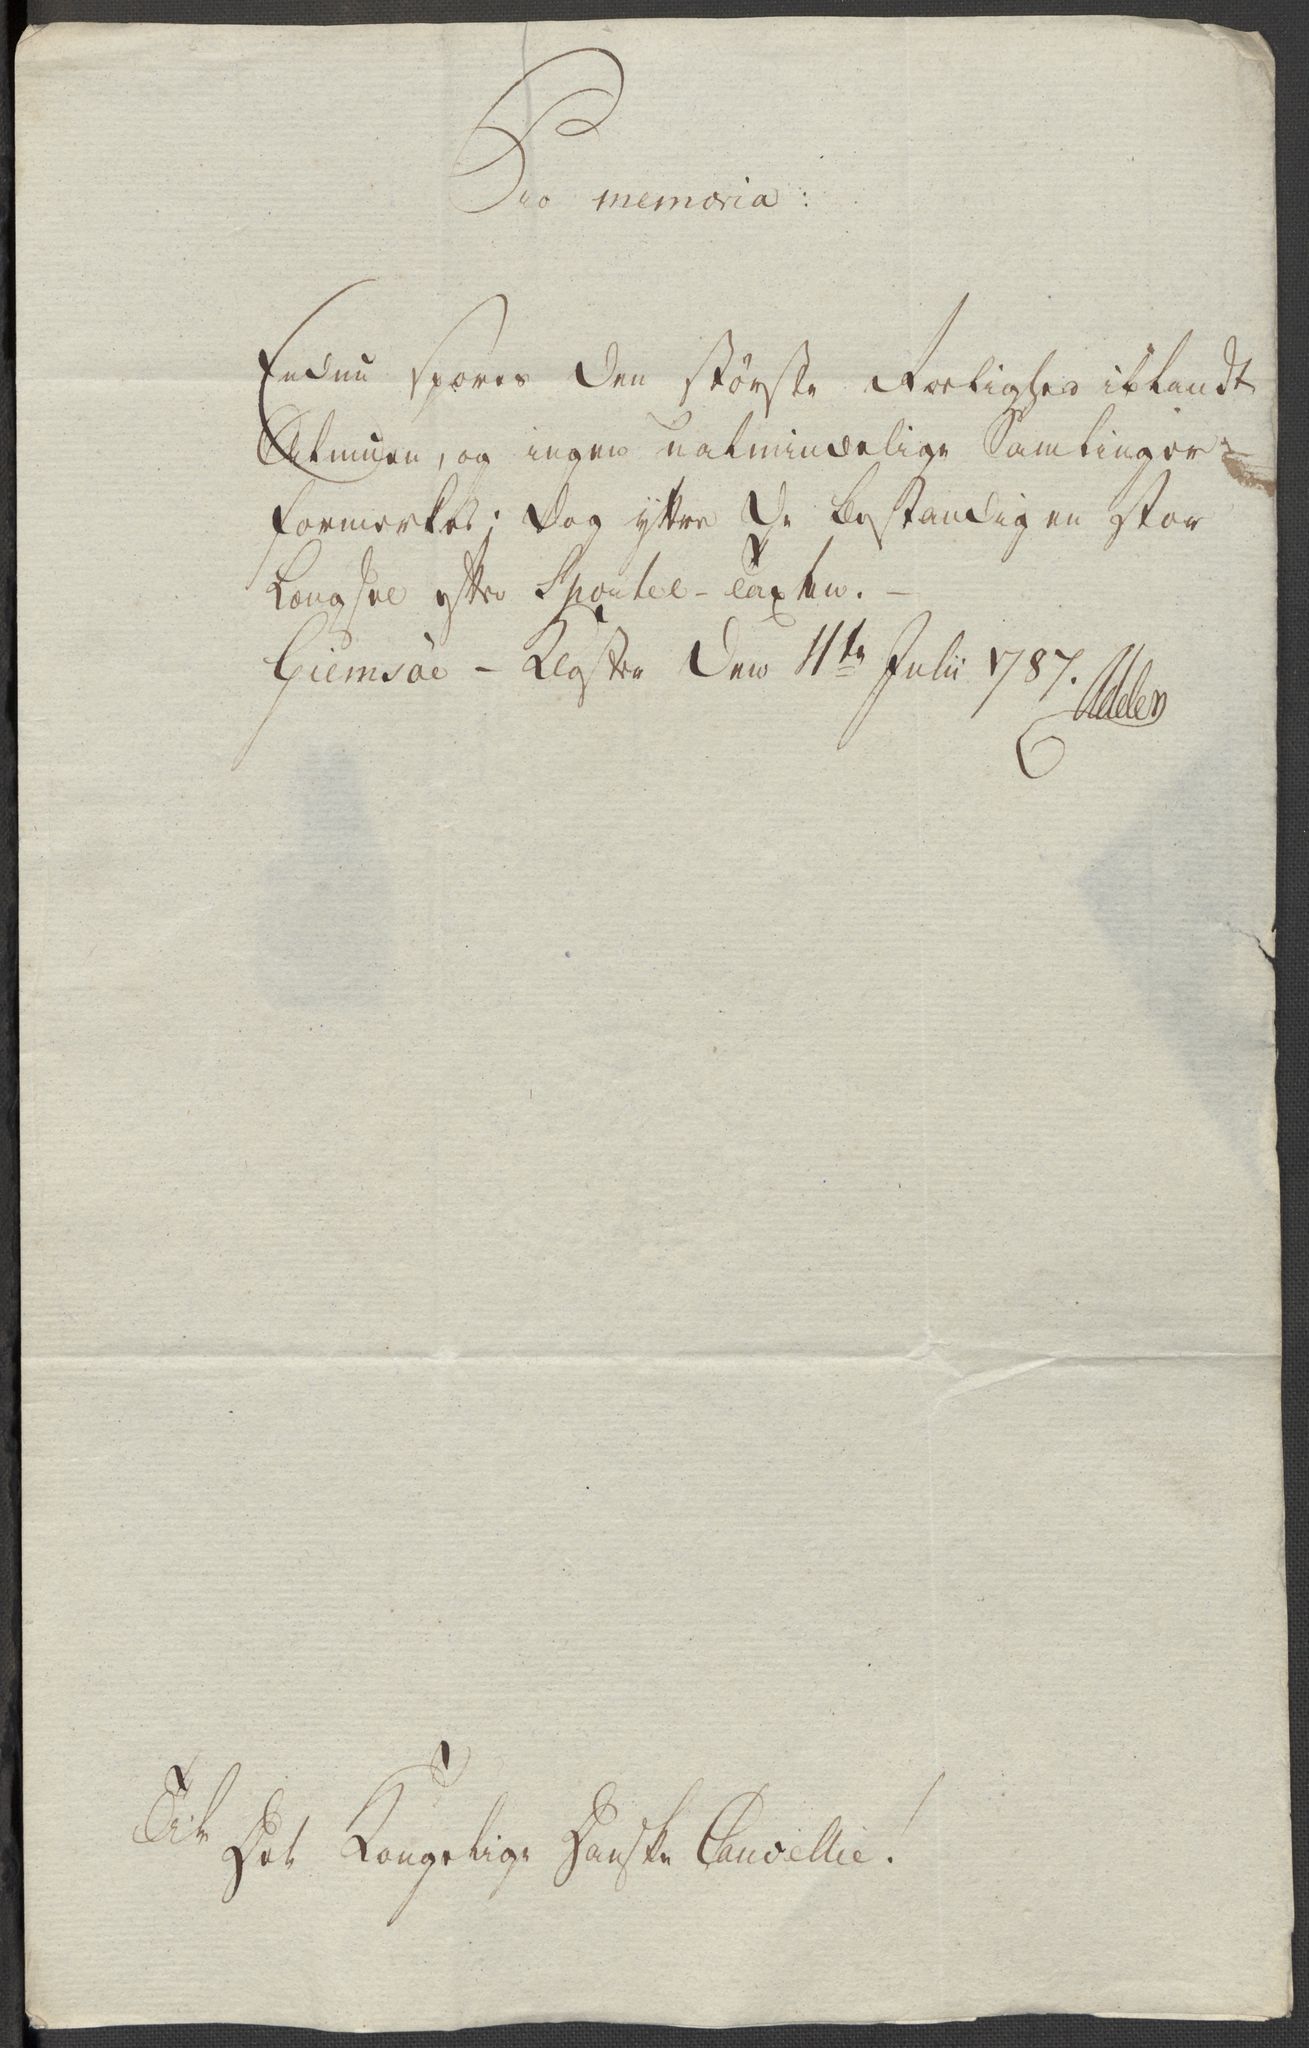 Pro memoria:
Endnu spores den største Roelighed iblandt
Almuen, og ingen ualmindelige Samlinger
formerkes; dog yttre de bestandig en stor
Længsel efter Sportel-Taxten. –
Giemsøe – Kloster den 11te Julii 1787.
Adeler
Til
Det Kongelige Danske Cancellie!